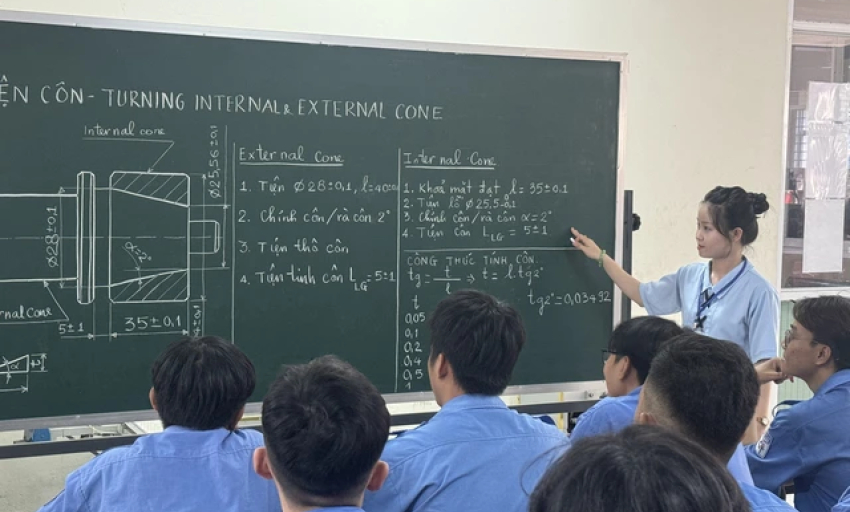 ỆN CÔN - TURNING INTERNAL & EXTERNAL CONE
Internal cone
Ø25,56±0,1
Ø28±0,1
α=2°
5±1
35±0,1
External Cone
1. Tiện Ø28±0,1, l=40
2. Chỉnh côn/rà côn 2°
3. Tiện thô côn
4. Tiện tinh côn L LG = 5±1
Internal Cone
1. Khoả mặt đạt l = 35±0,1
2. Tiện lỗ Ø25,5±0,1
3. Chỉnh côn/rà côn α=2°
4. Tiện côn L LG = 5±1
CÔNG THỨC TÍNH CÔN
tg = t/l ⇒ t = l.tg2°
tg2° = 0,03492
t
0,05
0,1
0,2
0,4
0,5
1